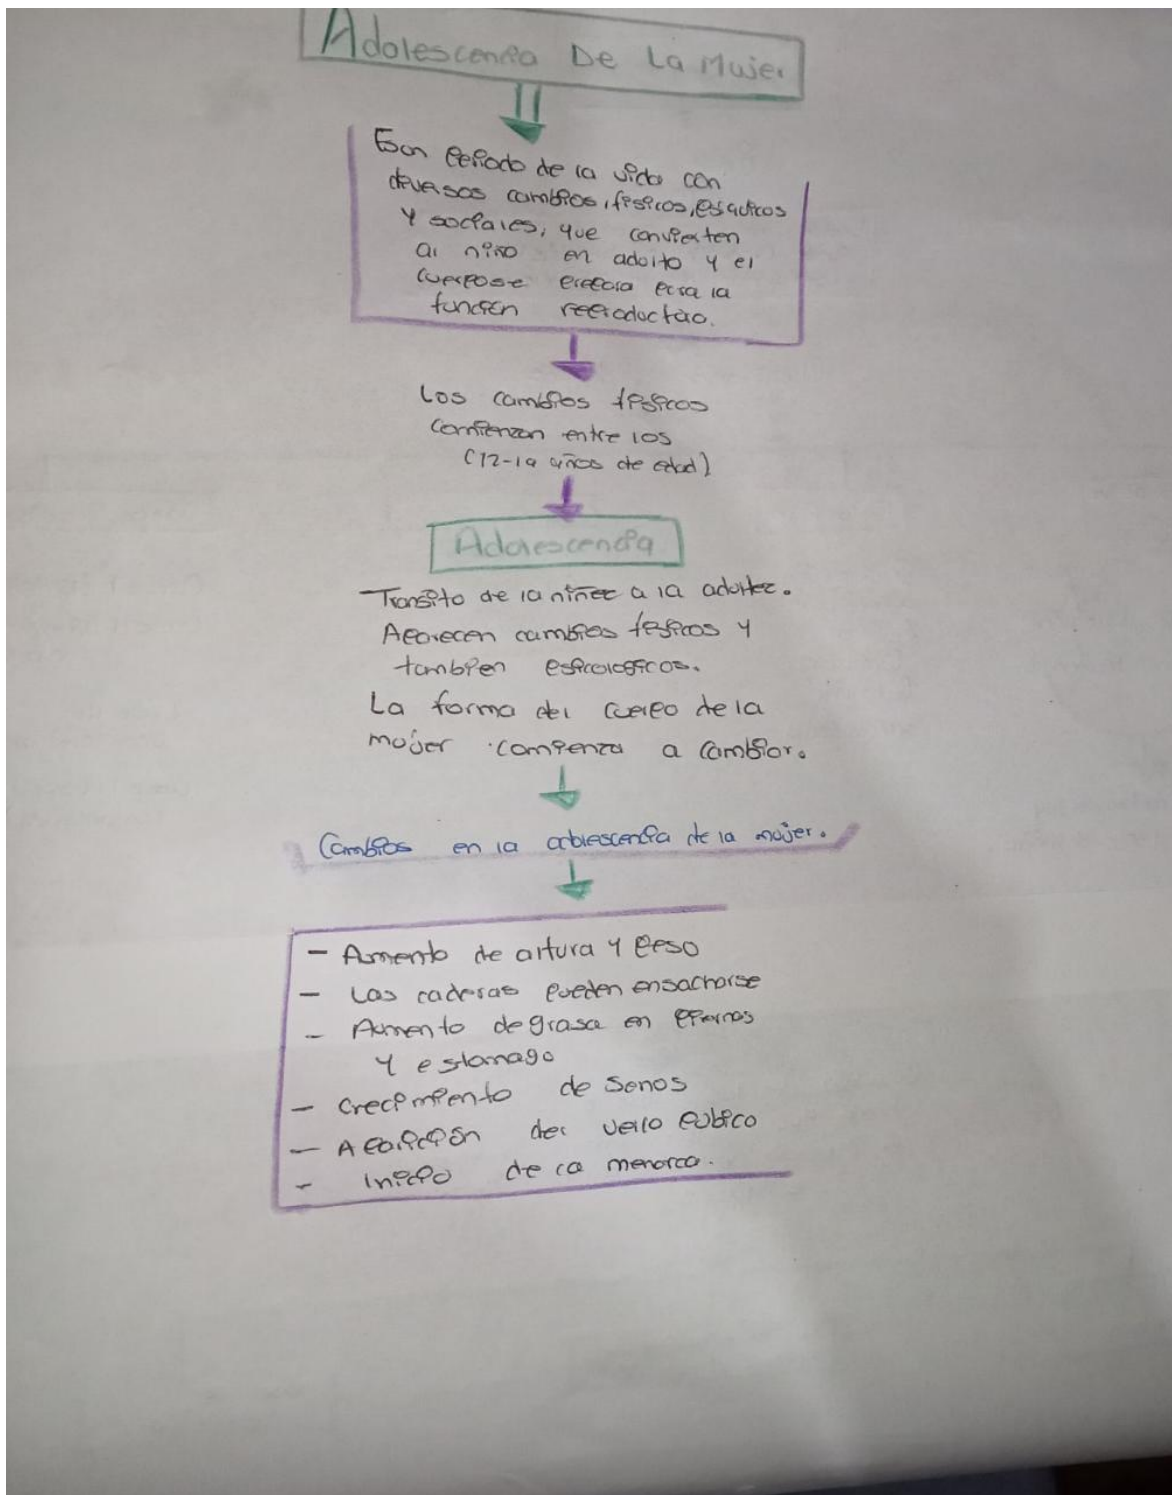 Adolescencia De La Mujer
Es un periodo de la vida con
diversos cambios, físicos, psíquicos
y sociales, que convierten
al niño en adulto y el
cuerpo se prepara para la
función
Los cambios físicos
comienzan entre los
(12-19 años de edad)
Adolescencia
Transito de la niñez a la adultez.
Aparecen cambios físicos y
tambien psicologicos.
La forma del cuerpo de la
mujer comienza a cambiar.
Cambios en la adolescencia de la mujer.
- Aumento de altura y peso
- Las caderas pueden ensacharse
- Aumento de grasa en piernas
y estomago
- Crecimiento de senos
- Aparición del vello pubico
- Inicio de la